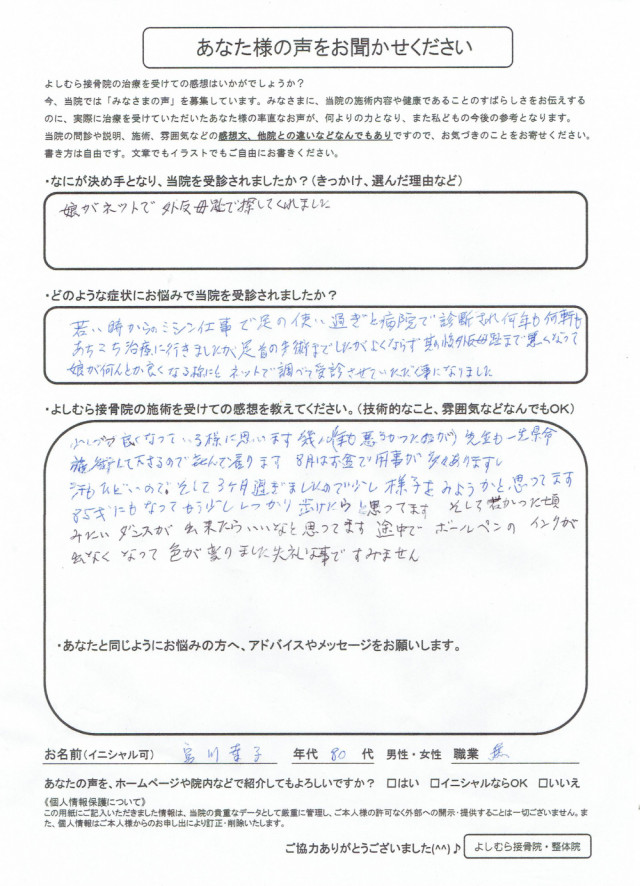 あなた様の声をお聞かせください
よしむら接骨院の治療を受けての感想はいかがでしょうか？
今、当院では「みなさまの声」を募集しています。みなさまに、当院の施術内容や健康であることのすばらしさをお伝えする
のに、実際に治療を受けていただいたあなた様の率直なお声が、何よりの力となり、また私どもの今後の参考となります。
当院の問診や説明、施術、雰囲気などの感想文、他院との違いなどなんでもありですので、お気づきのことをお寄せください。
書き方は自由です。文章でもイラストでもご自由にお書きください。
・なにが決め手となり、当院を受診されましたか？（きっかけ、選んだ理由など）
娘がネットで外反母趾で探してくれました
・どのような症状にお悩みで当院を受診されましたか？
若い時からのミシン仕事で足の使い過ぎと病院で診断され何年も何軒も
あちこち治療に行きましたが足首の手術までしたがよくならず其の後外反母趾まで悪くなって
娘が何んとか良くなる様にと ネットで調べ受診させていただく事になりました
・よしむら接骨院の施術を受けての感想を教えてください。（技術的なこと、雰囲気などなんでもOK）
少しづつ良くなっている様に思います 幾年も悪かったのが 先生も一生県命
施術して下さるので喜んで居ります 8月はお盆で用事が多くありますし
汗もひどいので。そして3ヶ月過ぎましたので少し様子をみようかと思ってます
85才にもなってもう少ししっかり歩けたらと思ってます そして若かった頃
みたい ダンスが出来たらいいなと思ってます 途中で ボールペンの インクが
出なく なって 色が変りました失礼な事ですみません
・あなたと同じようにお悩みの方へ、アドバイスやメッセージをお願いします。
お名前（イニシャル可） 宮川幸子 年代 80 代 男性・女性 職業 無
あなたの声を、ホームページや院内などで紹介してもよろしいですか？ □はい □イニシャルならOK □いいえ
《個人情報保護について》
この用紙にご記入いただきました情報は、当院の貴重なデータとして厳重に管理し、ご本人様の許可なく外部への開示・提供することは一切ございません。ま
た、個人情報はご本人様からのお申し出により訂正・削除いたします。
ご協力ありがとうございました(^^)♪ よしむら接骨院・整体院